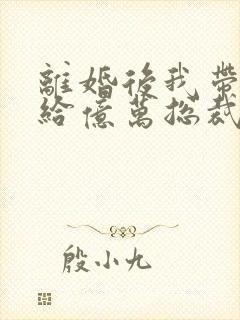 離婚後我帶
給億萬總裁
殷小九